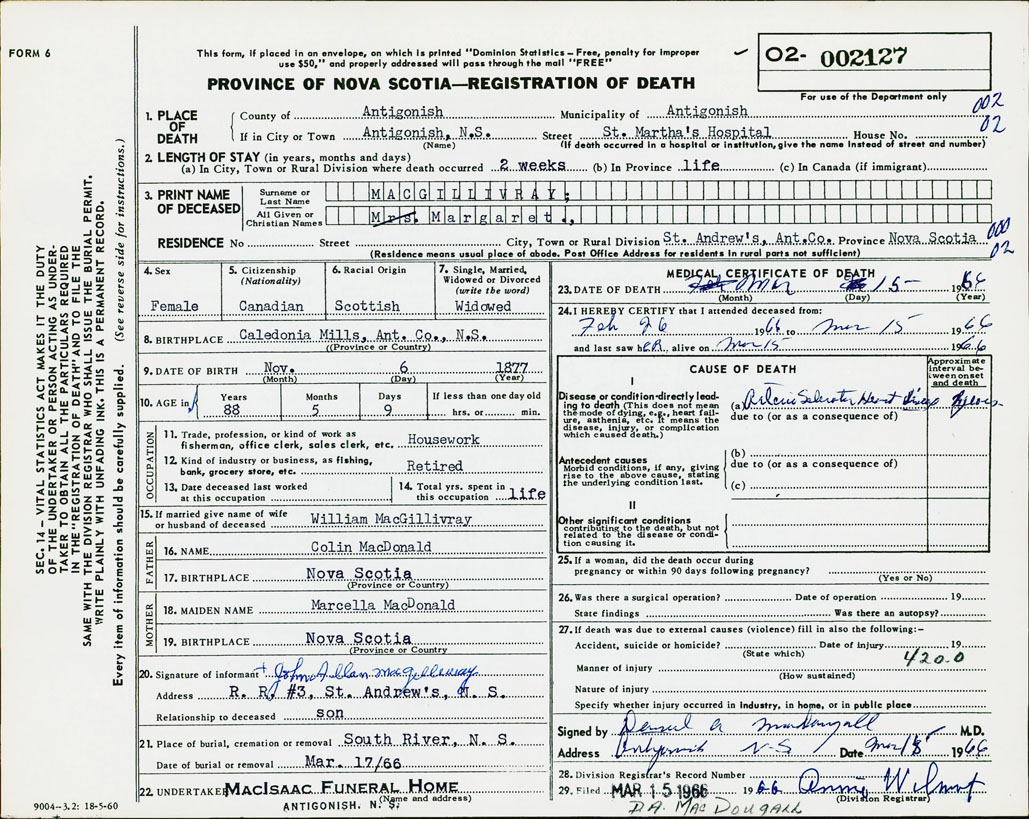 FORM 6
This form, if placed in an envelope, on which is printed "Dominion Statistics – Free, penalty for improper
use $50," and properly addressed will pass through the mail "FREE"
PROVINCE OF NOVA SCOTIA—REGISTRATION OF DEATH
02- 002127
For use of the Department only
002
02
1. PLACE OF DEATH
County of Antigonish Municipality of Antigonish
If in City or Town Antigonish, N.S. Street St. Martha's Hospital House No.
(Name) (If death occurred in a hospital or institution, give the name instead of street and number)
2. LENGTH OF STAY (in years, months and days)
(a) In City, Town or Rural Division where death occurred 2 weeks (b) In Province life (c) In Canada (if immigrant)
3. PRINT NAME OF DECEASED
Surname or Last Name MACGILLIVRAY;
All Given or Christian Names Mrs. Margaret.,
000
02
RESIDENCE No Street City, Town or Rural Division St. Andrew's, Ant.Co. Province Nova Scotia
(Residence means usual place of abode. Post Office Address for residents in rural parts not sufficient)
4. Sex
Female
5. Citizenship
(Nationality)
Canadian
6. Racial Origin
Scottish
7. Single, Married,
Widowed or Divorced
(write the word)
Widowed
8. BIRTHPLACE Caledonia Mills, Ant. Co., N.S.
((Province or Country)
9. DATE OF BIRTH Nov. 6 1877
(Month) (Day) (Year)
10. AGE in
Years Months Days If less than one day old
88 5 9 hrs. or min.
OCCUPATION
11. Trade, profession, or kind of work as
fisherman, office clerk, sales clerk, etc. Housework
12. Kind of industry or business, as fishing,
bank, grocery store, etc. Retired
13. Date deceased last worked
at this occupation
14. Total yrs. spent in
this occupation life
15. If married give name of wife
or husband of deceased William MacGillivray
FATHER
16. NAME Colin MacDonald
17. BIRTHPLACE Nova Scotia
(Province or Country)
MOTHER
18. MAIDEN NAME Marcella MacDonald
19. BIRTHPLACE Nova Scotia
(Province or Country
20. Signature of informant John Allan MacGillivray
Address R. R. #3, St. Andrew's, N. S.
Relationship to deceased son
21. Place of burial, cremation or removal South River, N. S.
Date of burial or removal Mar. 17/66
22. UNDERTAKE MACISAAC FUNERAL HOME
(Name and address)
ANTIGONISH. N. S.
9004—3.2: 18-5-60
MEDICAL CERTIFICATE OF DEATH
23. DATE OF DEATH Feb Mar 15 1966
(Month) (Day) (Year)
24. I HEREBY CERTIFY that I attended deceased from:
Feb 26 1966 to Mar 15 1966
and last saw her alive on Mar 15 1966
CAUSE OF DEATH
Approximate interval between onset and death
I
Disease or condition directly leading to death (This does not mean the mode of dying, e.g., heart failure, asthenia, etc. It means the disease, injury, or complication which caused death.)
(a) Arterio Sclerotic Heart
due to (or as a consequence of)
Antecedent causes
Morbid conditions, if any, giving rise to the above cause, stating the underlying condition last.
(b)
due to (or as a consequence of)
(c)
II
Other significant conditions
contributing to the death, but not related to the disease or condition causing it.
25. If a woman, did the death occur during
pregnancy or within 90 days following pregnancy?
(Yes or No)
26. Was there a surgical operation? Date of operation 19
State findings Was there an autopsy?
27. If death was due to external causes (violence) fill in also the following:–
Accident, suicide or homicide? Date of injury 19
(State which)
420.0
Manner of injury
(How sustained)
Nature of injury
Specify whether injury occurred in industry, in home, or in public place
Signed by Daniel A MacDougall M.D.
Address Antigonish N-S Date Mar 15 1966
28. Division Registrar's Record Number
29. Filed MAR 15 1966 1966
(Division Registrar)
D.A. MAC DOUGALL
SEC. 14 – VITAL STATISTICS ACT MAKES IT THE DUTY
OF THE UNDERTAKER OR PERSON ACTING AS UNDER-
TAKER TO OBTAIN ALL THE PARTICULARS REQUIRED
IN THE "REGISTRATION OF DEATH" AND TO FILE THE
SAME WITH THE DIVISION REGISTRAR WHO SHALL ISSUE THE BURIAL PERMIT.
WRITE PLAINLY WITH UNFADING INK. THIS IS A PERMANENT RECORD.
Every item of information should be carefully supplied. (See reverse side for instructions.)